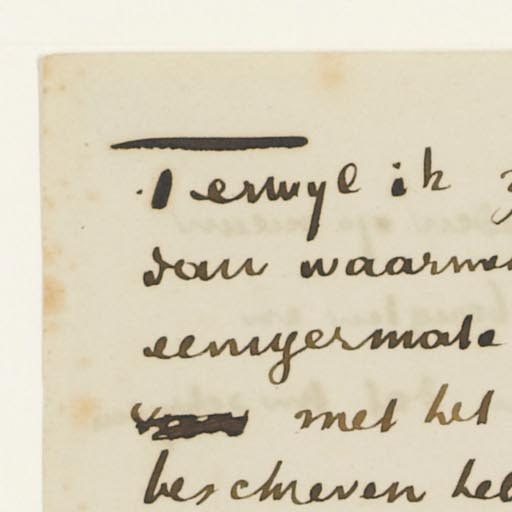 Terwyl ik
dan
eenigermate
met het
beschreven